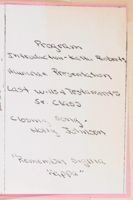 Program
Introduction - Kathi Roberts
Awards Presentation
Last Will & Testaments
Sr. Class
Closing Song -
Holly Johnson
"Remember Sigma
Kappa"